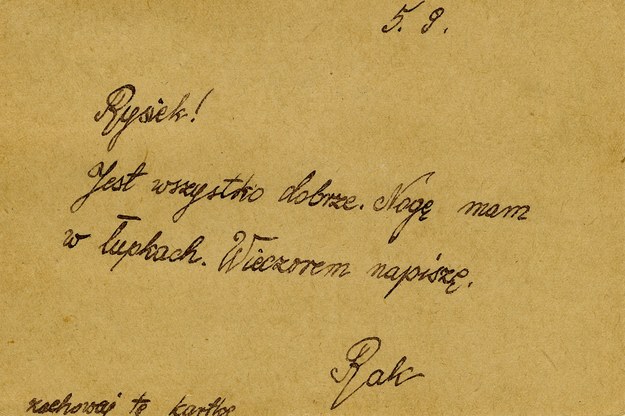 5. 9.
Rysiek!
Jest wszystko dobrze. Nogę mam
w łupkach. Wieczorem napiszę.
Rak
zachowaj tę kartkę